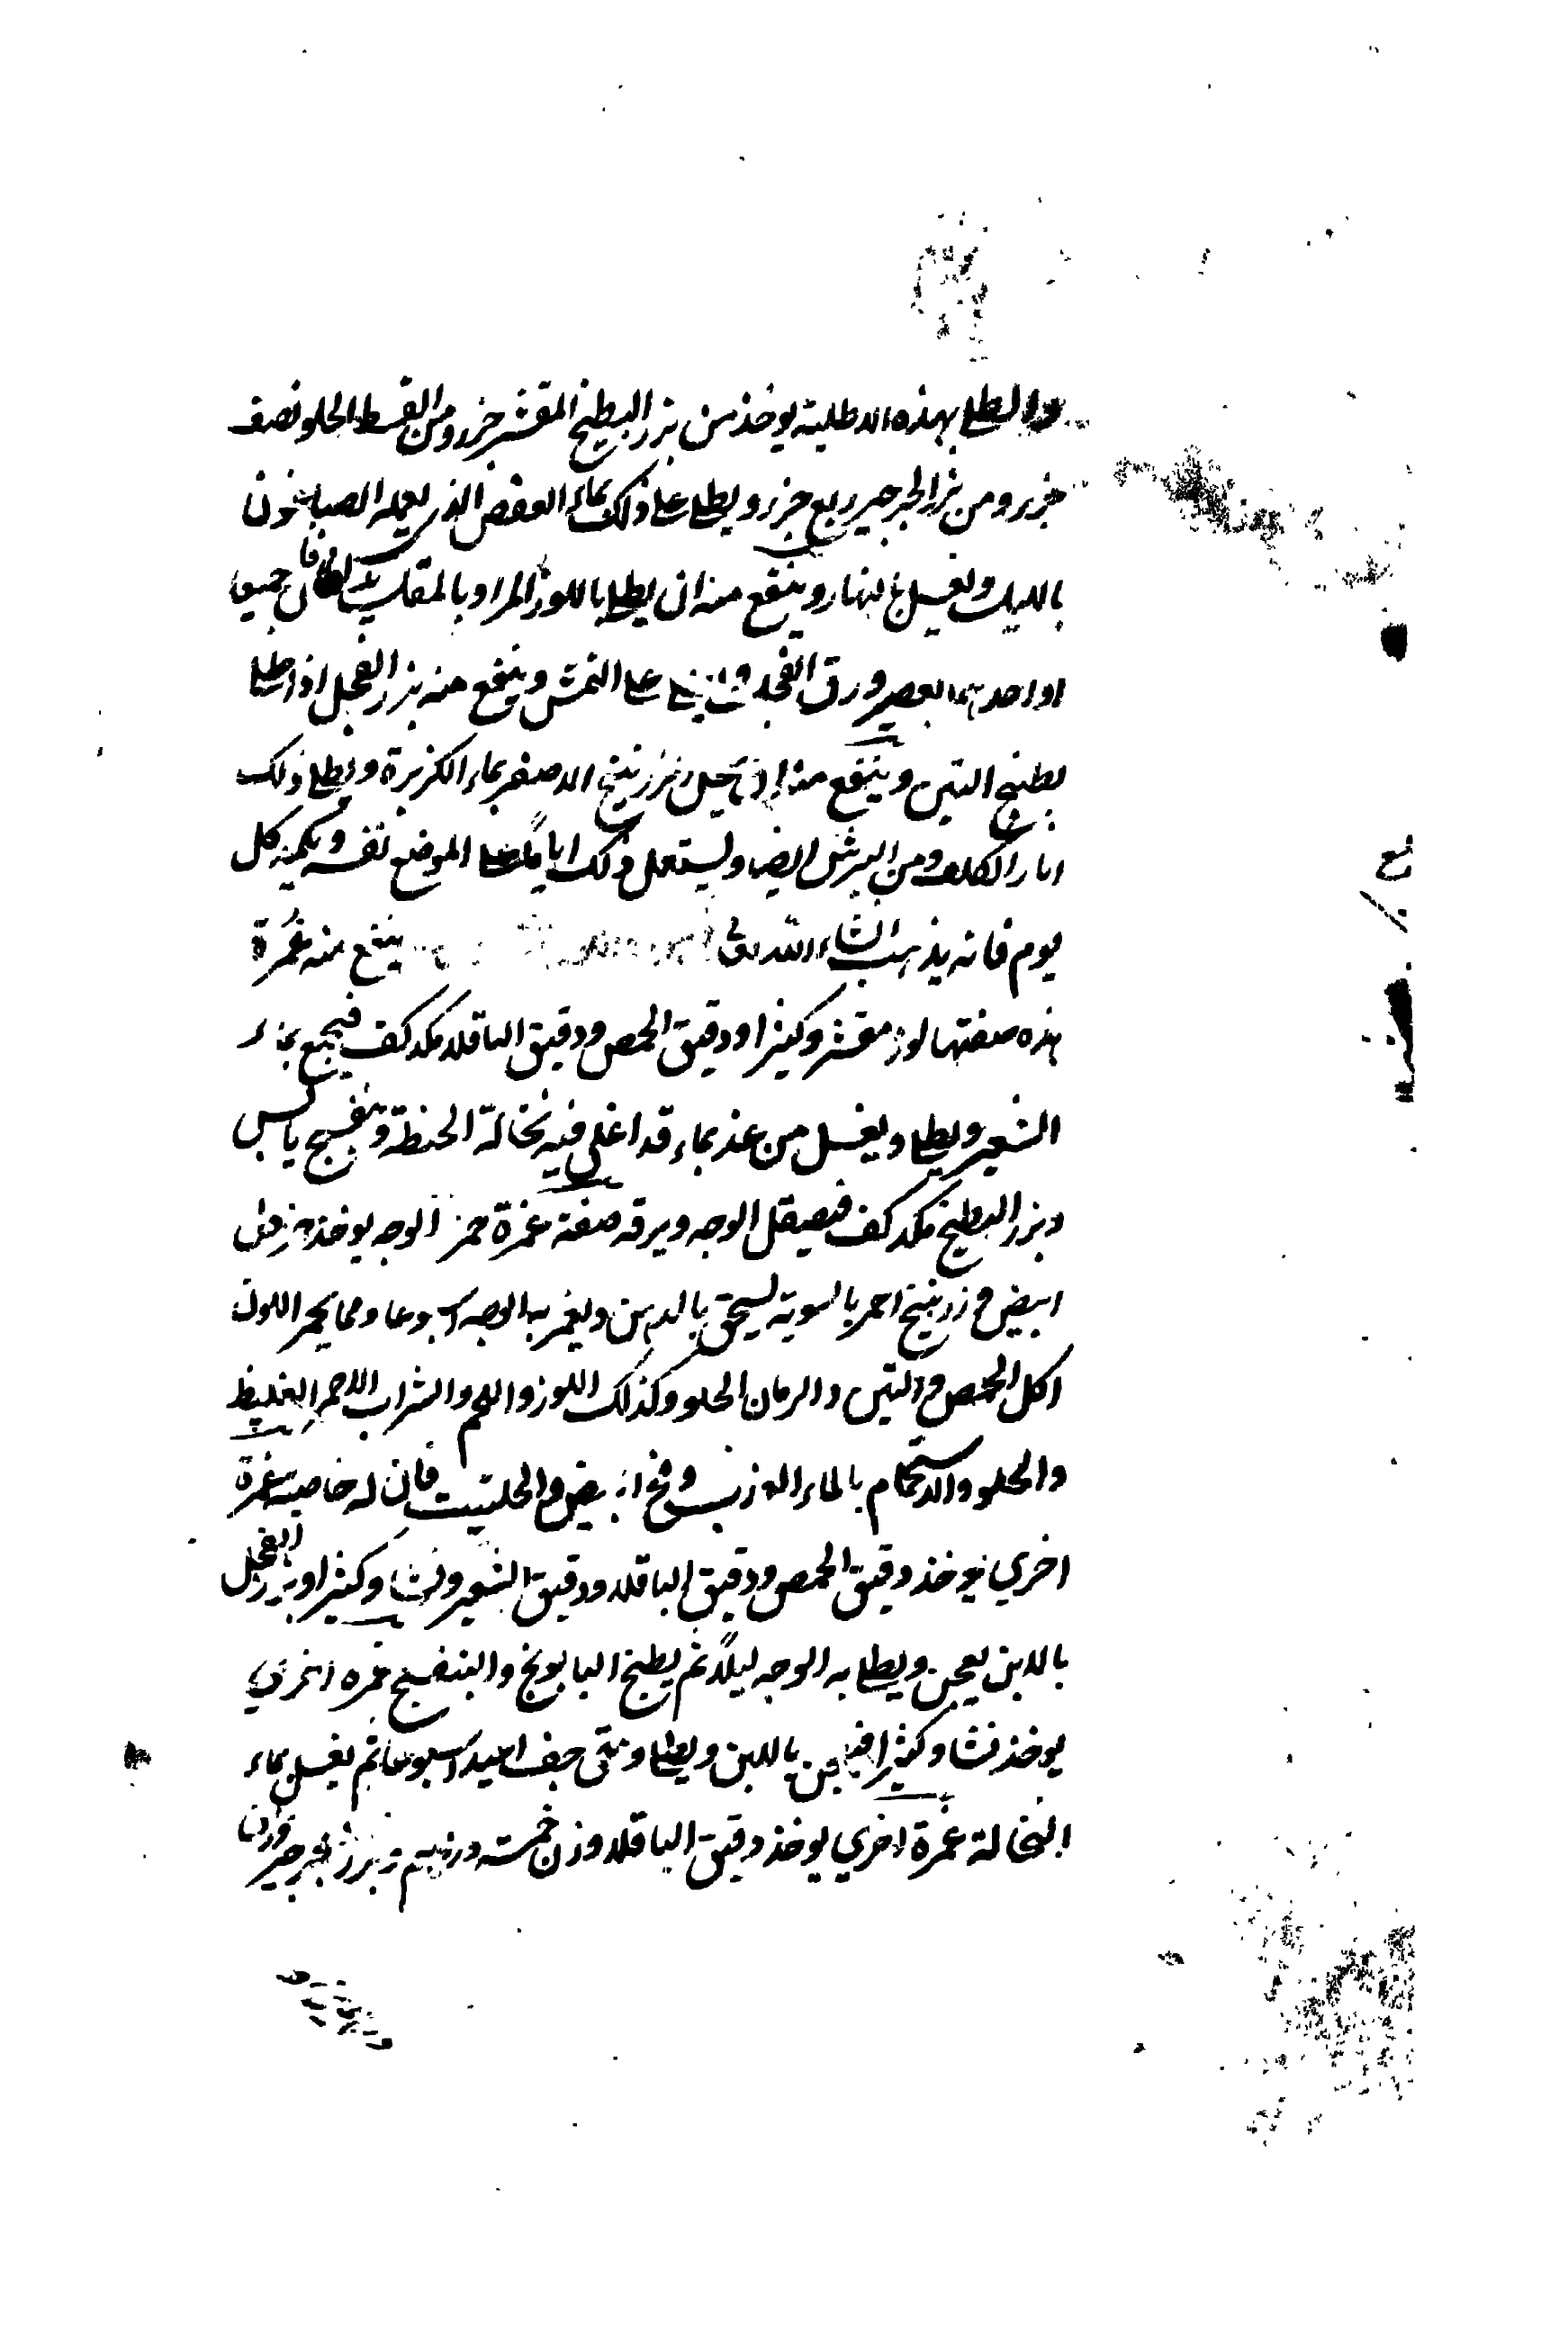 والطلا بهذه الاطلية يوخذ من بزر البطيخ المقشر جزر ومن القسط الحلو نصف
جزر ومن بزر الجرجير ربع جزر ويطلا على ذلك بماء العفص الذي يعمله الصباغون
بالليل ويغسل بالنهار وينفع منه ان يطلا باللوز المر او بالمقل جميعا
او احدهما بعصير ورق الفجل على النمش وينفع منه بزر الفجل اذا طلا
بطبيخ التين وينفع منه زرنيخ الاصفر بماء الكزبرة ويطلا ذلك
اثار الكلف ومن البرش ايضا ويستعمل ذلك اياما على الموضع نفسه ويكمد كل
يوم فانه يذهب انشاء الله تعالى ينفع منه غُمرة
هذه صفتها لوز مقشر وكثيرا ودقيق الحمص ودقيق الباقلا مكد كف فيجمع بماء
الشعير ويطلا ويغسل من غد بماء قد اغلي فيه نخالة الحنطة وبنفسج يابس
وبزر البطيخ مكد كف فيصقل الوجه ويرقه صفة غمرة حمر الوجه يوخذ
ابيض وزرنيخ احمر بالسوية يسحق بالدهن ويغمر به الوجه اسبوعا ومما يحمر اللون
اكل الحمص والتين والرمان الحلو وكذلك اللوز واللحم والشراب الاحمر الغليظ
والحلو والاستحمام بالماء العذب والحلتيت فان له خاصية غمرة
اخري يوخذ دقيق الحمص ودقيق الباقلا ودقيق الشعير ونشا وكثيرا وبزر الفجل
باللبن يعجن ويطلا به الوجه ليلًا ثم يطبخ البابونج والبنفسج غمره اخري
يوخذ نشا وكثيرا فيعجن باللبن ويطلا ومتى جف اعيد اسبوعا ثم يغسل بماء
النخالة غمرة اخري يوخذ دقيق الباقلا وزن خمسة دراهم وبزر الجرجير وزن